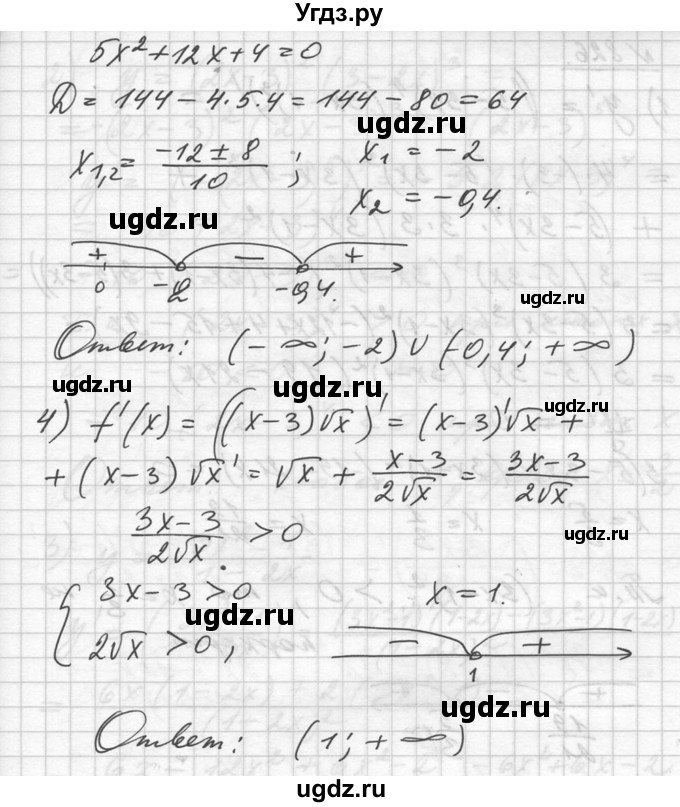 Угдз.ру
5x² + 12x + 4 = 0
Д = 144 − 4·5·4 = 144 − 80 = 64
ugdz.ru
x₁,₂ = (−12 ± 8)/10 ; x₁ = −2
ugdz.ru
x₂ = −0,4.
+ − +
0 −2 −0,4.
ugdz.ru
Ответ: (−∞; −2) ∪ (−0,4; +∞)
ugdz.ru ugdz.ru
4) f'(x) = ((x−3)√x)' = (x−3)'√x +
ugdz.ru
+ (x−3)√x' = √x + (x−3)/(2√x) = (3x−3)/(2√x)
(3x−3)/(2√x) > 0
ugdz.ru
{ 3x − 3 > 0 x = 1.
ugdz.ru
2√x > 0,
− +
1
ugdz.ru
Ответ: (1; +∞)
ugdz.ru